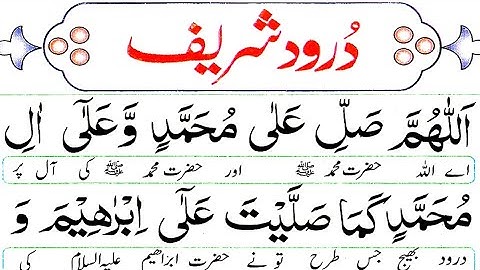 درود شریف
اَللّٰهُمَّ صَلِّ عَلٰى مُحَمَّدٍ وَّعَلٰٓى اٰلِ
اے اللہ حضرت محمد ﷺ اور حضرت محمد ﷺ کی آل پر
مُحَمَّدٍ كَمَا صَلَّيْتَ عَلٰٓى اِبْرٰهِيْمَ وَ
درود بھیج جس طرح تونے حضرت ابراھیم علیہ السلام کی